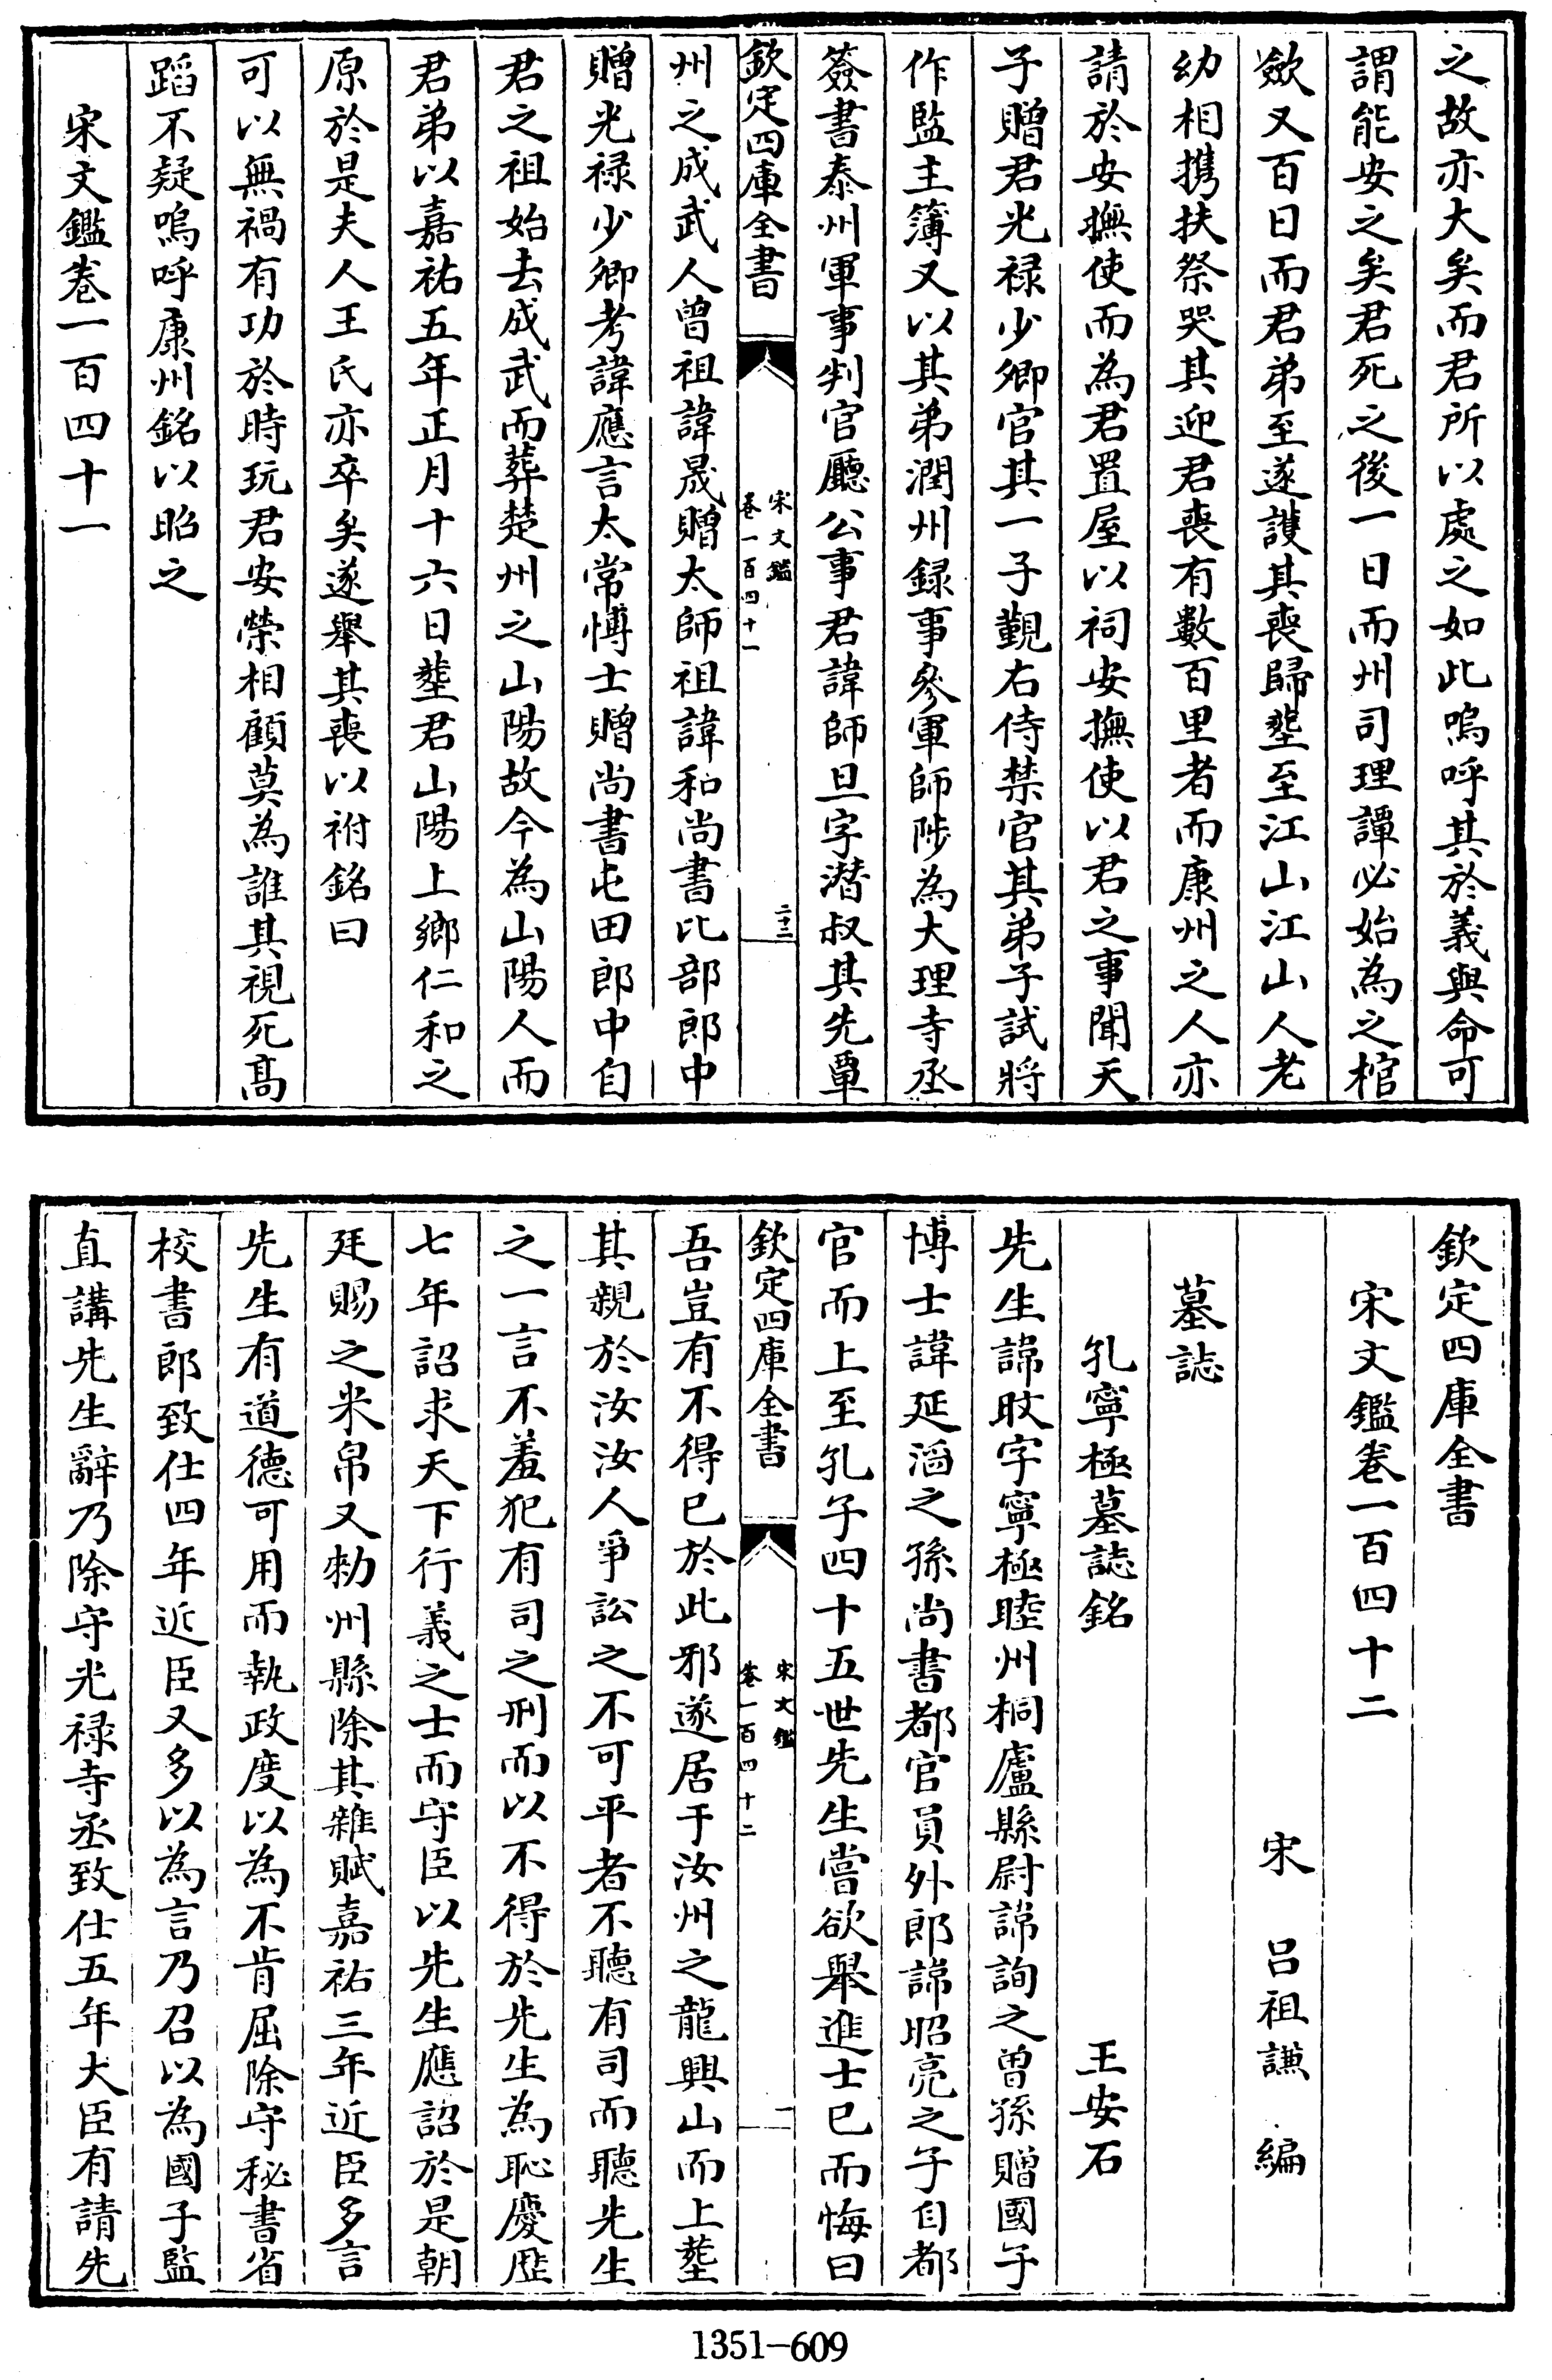 之故亦大矣而君所以處之如此嗚呼其於義與命可
謂能安之矣君死之後一日而州司理譚必始為之棺
歛又百日而君弟至遂護其喪歸塟至江山江山人老
幼相携扶祭哭其迎君喪有數百里者而康州之人亦
請於安撫使而為君置屋以祠安撫使以君之事聞天
子贈君光禄少卿官其一子覲右侍禁官其弟子試將
作監主簿又以其弟潤州録事參軍師陟為大理寺丞
簽書泰州軍事判官廳公事君諱師旦字潛叔其先單
欽定四庫全書
宋文鑑
卷一百四十一
二十二
州之成武人曾祖諱晟贈太師祖諱和尚書比部郎中
贈光禄少卿考諱應言太常博士贈尚書屯田郎中自
君之祖始去成武而葬楚州之山陽故今為山陽人而
君弟以嘉祐五年正月十六日塟君山陽上鄉仁和之
原於是夫人王氏亦卒矣遂舉其喪以祔銘曰
可以無禍有功於時玩君安榮相顧莫為誰其視死髙
蹈不疑嗚呼康州銘以昭之
宋文鑑卷一百四十一
欽定四庫全書
宋文鑑卷一百四十二
宋 吕祖謙 編
墓誌
孔寧極墓誌銘 王安石
先生諱旼字寧極睦州桐廬縣尉諱詢之曾孫贈國子
博士諱延滔之孫尚書都官員外郎諱昭亮之子自都
官而上至孔子四十五世先生嘗欲舉進士已而悔曰
欽定四庫全書
宋文鑑
卷一百四十二
一
吾豈有不得已於此邪遂居于汝州之龍興山而上塟
其親於汝汝人爭訟之不可平者不聽有司而聽先生
之一言不羞犯有司之刑而以不得於先生為恥慶歴
七年詔求天下行義之士而守臣以先生應詔於是朝
廷賜之米帛又勑州縣除其雜賦嘉祐三年近臣多言
先生有道德可用而執政度以為不肯屈除守秘書省
校書郎致仕四年近臣又多以為言乃召以為國子監
直講先生辭乃除守光禄寺丞致仕五年大臣有請先
1351-609